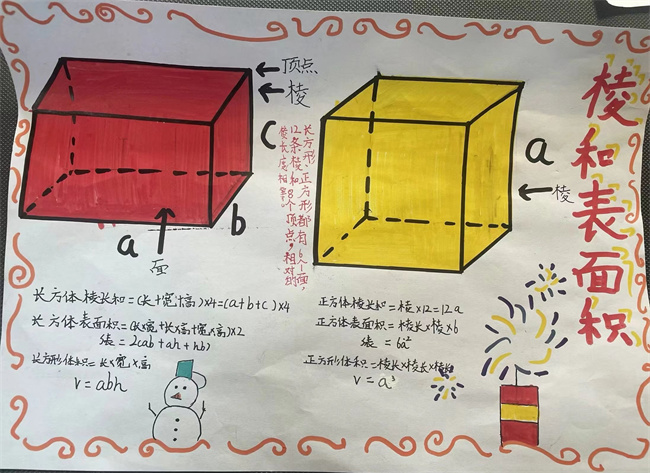 棱和表面积
顶点
棱
c
b
a
面
长方形、正方形都有6个面,
12条棱和8个顶点,相对的
棱长度相等。
a
棱
长方体棱长和=(长+宽+高)×4=(a+b+c)×4
长方体表面积=(长×宽+长×高+宽×高)×2
=2(ab+ah+hb)
长方形体积=长×宽×高
V=abh
正方体棱长和=棱×12=12a
正方体表面积=棱长×棱×6
=6a²
正方形体积=棱长×棱长×棱长
V=a³